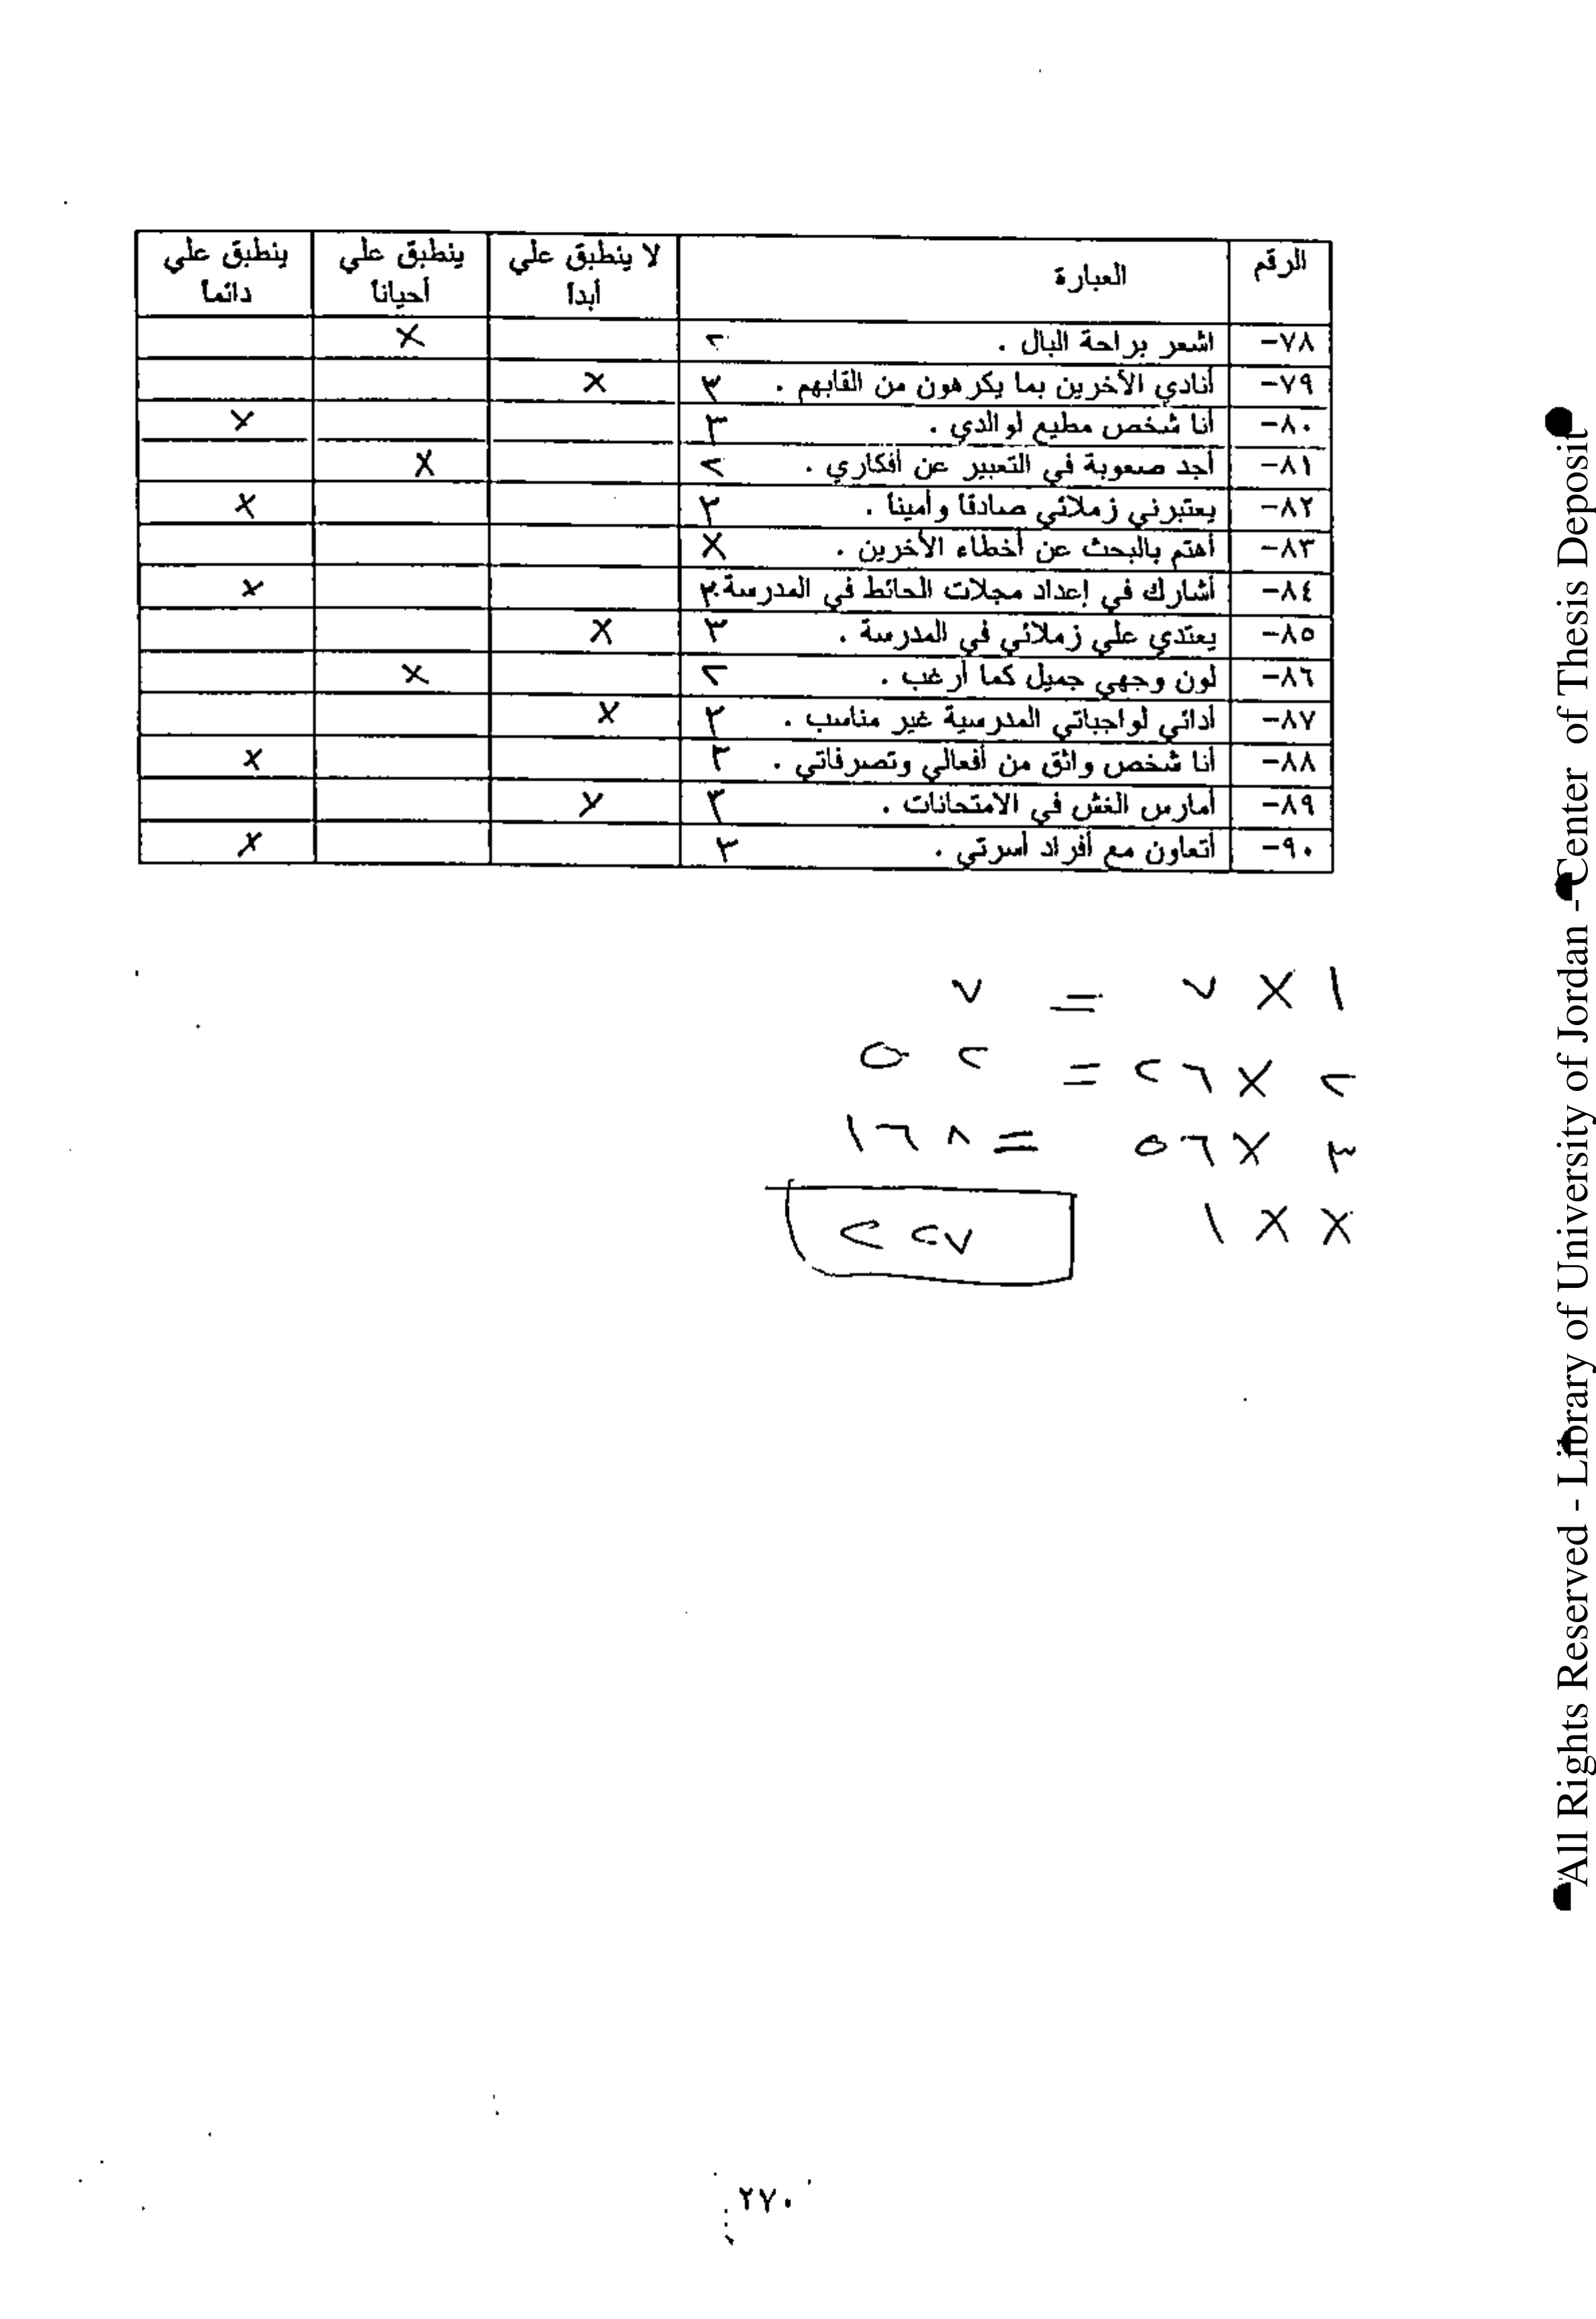 الرقم العبارة لا ينطبق علي أبداً ينطبق علي أحياناً ينطبق علي دائماً
٧٨- اشعر براحة البال . ٢ X
٧٩- أنادي الآخرين بما يكرهون من القابهم . ٣ X
٨٠- أنا شخص مطيع لوالدي . ٣ X
٨١- أجد صعوبة في التعبير عن أفكاري . ٢ X
٨٢- يعتبرني زملائي صادقا وأمينا . ٣ X
٨٣- أهتم بالبحث عن أخطاء الآخرين . X
٨٤- أشارك في إعداد مجلات الحائط في المدرسة. ٣ X
٨٥- يعتدي علي زملائي في المدرسة . ٣ X
٨٦- لون وجهي جميل كما أرغب . ٢ X
٨٧- أدائي لواجباتي المدرسية غير مناسب . ٣ X
٨٨- أنا شخص واثق من أفعالي وتصرفاتي . ٣ X
٨٩- أمارس الغش في الامتحانات . ٣ X
٩٠- أتعاون مع أفراد أسرتي . ٣ X
١ X ٧ = ٧
٢ X ٢٦ = ٥٢
٣ X ٥٦ = ١٦٨
X X ١
٢٢٧
٢٧٠
All Rights Reserved - Library of University of Jordan - Center of Thesis Deposit